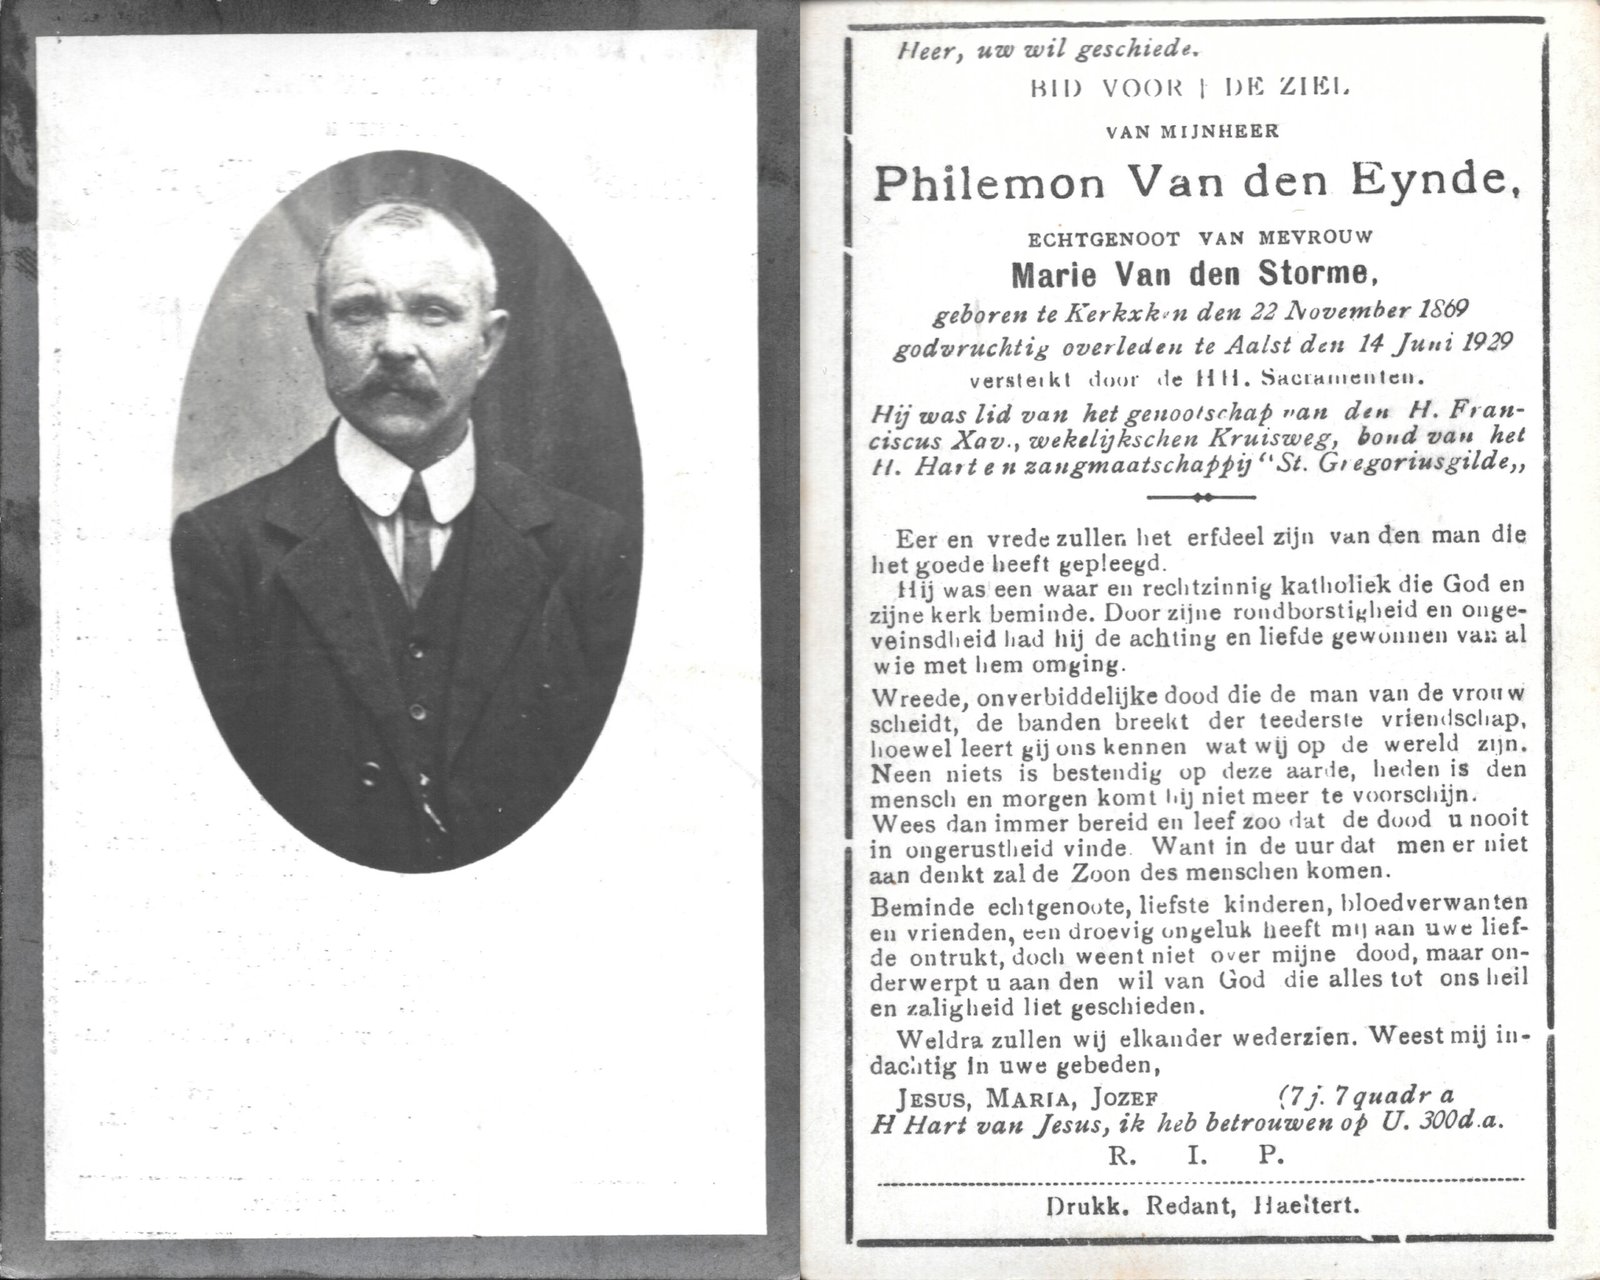 Heer, uw wil geschiede.
BID VOOR † DE ZIEL
VAN MIJNHEER
Philemon Van den Eynde,
ECHTGENOOT VAN MEVROUW
Marie Van den Storme,
geboren te Kerkxken den 22 November 1869
godvruchtig overleden te Aalst den 14 Juni 1929
versterkt door de HH. Sacramenten.
Hij was lid van het genootschap van den H. Fran-
ciscus Xav., wekelijkschen Kruisweg, bond van het
H. Hart en zangmaatschappij "St. Gregoriusgilde„
Eer en vrede zullen het erfdeel zijn van den man die
het goede heeft gepleegd.
Hij was een waar en rechtzinnig katholiek die God en
zijne kerk beminde. Door zijne rondborstigheid en onge-
veinsdheid had hij de achting en liefde gewonnen van al
wie met hem omging.
Wreede, onverbiddelijke dood die de man van de vrouw
scheidt, de banden breekt der teederste vriendschap,
hoewel leert gij ons kennen wat wij op de wereld zijn.
Neen niets is bestendig op deze aarde, heden is den
mensch en morgen komt hij niet meer te voorschijn.
Wees dan immer bereid en leef zoo dat de dood u nooit
in ongerustheid vinde. Want in de uur dat men er niet
aan denkt zal de Zoon des menschen komen.
Beminde echtgenoote, liefste kinderen, bloedverwanten
en vrienden, een droevig ongeluk heeft mij aan uwe lief-
de ontrukt, doch weent niet over mijne dood, maar on-
derwerpt u aan den wil van God die alles tot ons heil
en zaligheid liet geschieden.
Weldra zullen wij elkander wederzien. Weest mij in-
dachtig in uwe gebeden,
JESUS, MARIA, JOZEF (7 j. 7 quadr a
H Hart van Jesus, ik heb betrouwen op U. 300 d.a.
R. I. P.
Drukk. Redant, Haeltert.